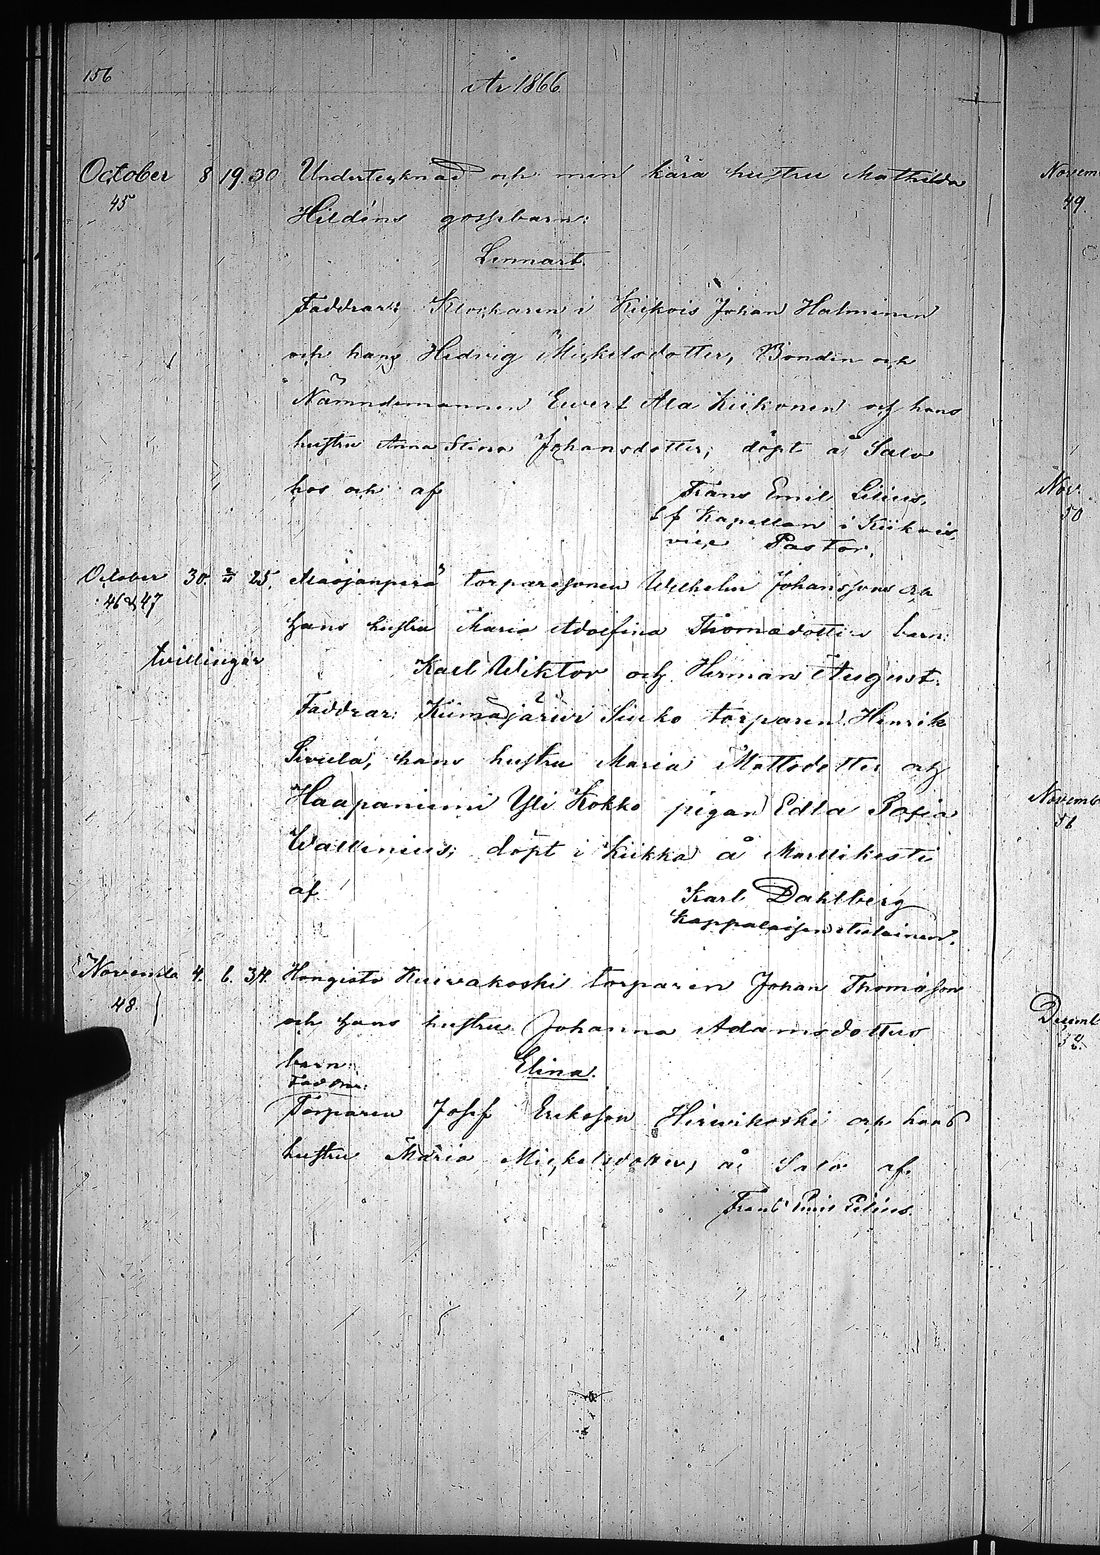 156
År 1866
October 8 19. 30 Undertecknad och min kära hustru Mathilda
45 Hildéns gossebarn:
Lennart.
Faddrar: Klockaren i Kiikois Johan Halminen
och hans Hedvig Mickelsdotter, Bonden och
Nämndemannen Ewert Ala Kiikonen och hans
hustru Anna Stina Johansdotter; döpt å Salo
hos och af Frans Emil Lilius,
Kapellan i Kiikois,
vice Pastor.
October 30. 25. torparesonen Wilhelm Johanssons och
46 & 47 hans hustru Maria Adolfina Thomasdotters barn:
tvillingar Karl Wiktor och Herman August.
Faddrar: Kiimajärvi torparen Henrik
Sivula, hans hustru Maria Mattsdotter och
Haapaniemi Yli Kokko pigan Edla Sofia
Wallenius; döpt i Kiikka å
af Karl Dahlberg
kappalaisen
November 4. 6. 34. Hongisto Kuivakoski torparen Johan Thomasson
48. och hans hustru Johanna Adamsdotters
barn: Elina.
Faddrar:
Torparen Josef Eriksson Hirvikoski och hans
hustru Maria Mickelsdotter, å Salo af
Frans Emil Lilius.
Novem
49.
Nov.
50
Novemb
51
Decemb
52.